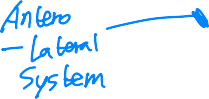 Antero
- Lateral
System